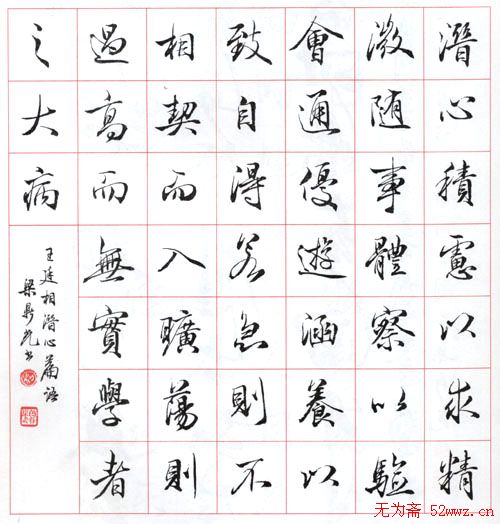 潛心積慮以求精
微随事體察以驗
會通優遊涵養以
致自得若急則不
相契而入曠蕩則
過高而無實學者
之大病
王廷相潛心篇語
梁鼎光书
无为斋 52wwz.cn